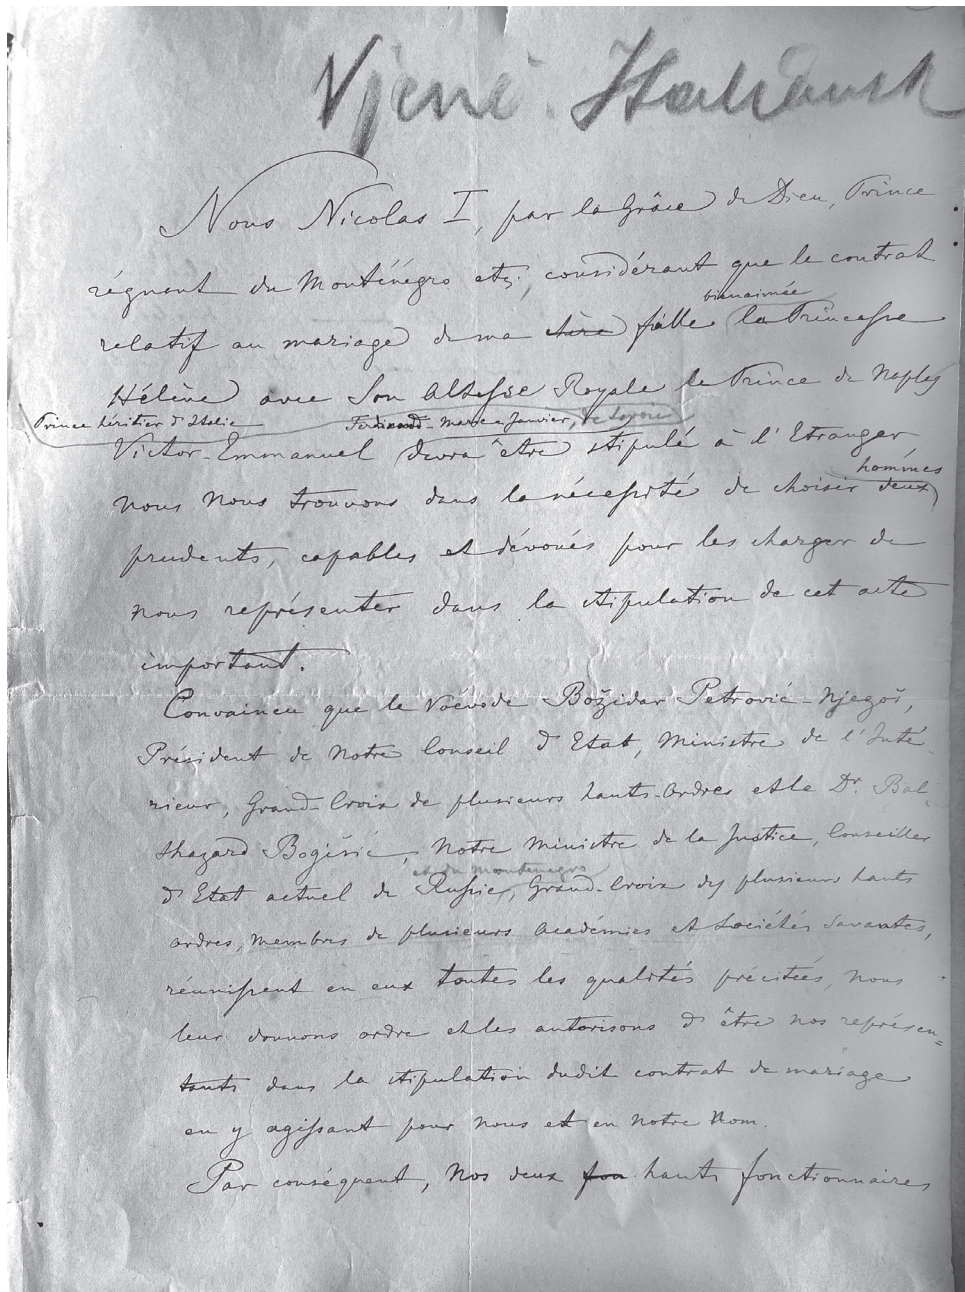 Nous Nicolas I, par la Grâce de Dieu, Prince
régnant du Monténégro etc, considérant que le contrat
bienaimée
relatif au mariage de ma chère fille la Princesse
Hélène avec Son Altesse Royale le Prince de Naples
Prince héritier d'Italie Ferdinand-Marie-Janvier, de Savoie
Victor-Emmanuel devra être stipulé à l'Etranger
hommes
nous nous trouvons dans la nécessité de choisir deux
prudents, capables et dévoués pour les charger de
nous représenter dans la stipulation de cet acte
important.
Convaincu que le Voévode Božidar Petrović-Njegoš,
Président de Notre Conseil d'Etat, Ministre de l'Inté-
rieur, Grand-Croix de plusieurs hauts-ordres et le Dr. Bal-
thazard Bogišić, Notre Ministre de la Justice, Conseiller
et du Monténégro
d'Etat actuel de Russie, Grand-Croix de plusieurs hauts
ordres, membres de plusieurs Académies et Sociétés Savantes,
réunissent en eux toutes les qualités précitées, nous
leur donnons ordre et les autorisons d'être nos représen=
tants dans la stipulation dudit contrat de mariage
en y agissant pour nous et en notre nom.
Par conséquent, Nos deux fon hauts fonctionnaires